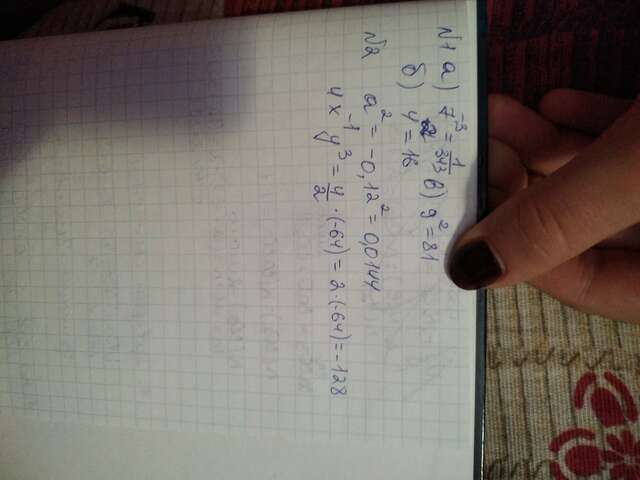 №1 а) 7⁻³ = 1/343 в) 9² = 81
б) 4² = 16
№2 a² = -0,12² = 0,0144
4x⁻¹ y³ = 4/2 · (-64) = 2 · (-64) = -128